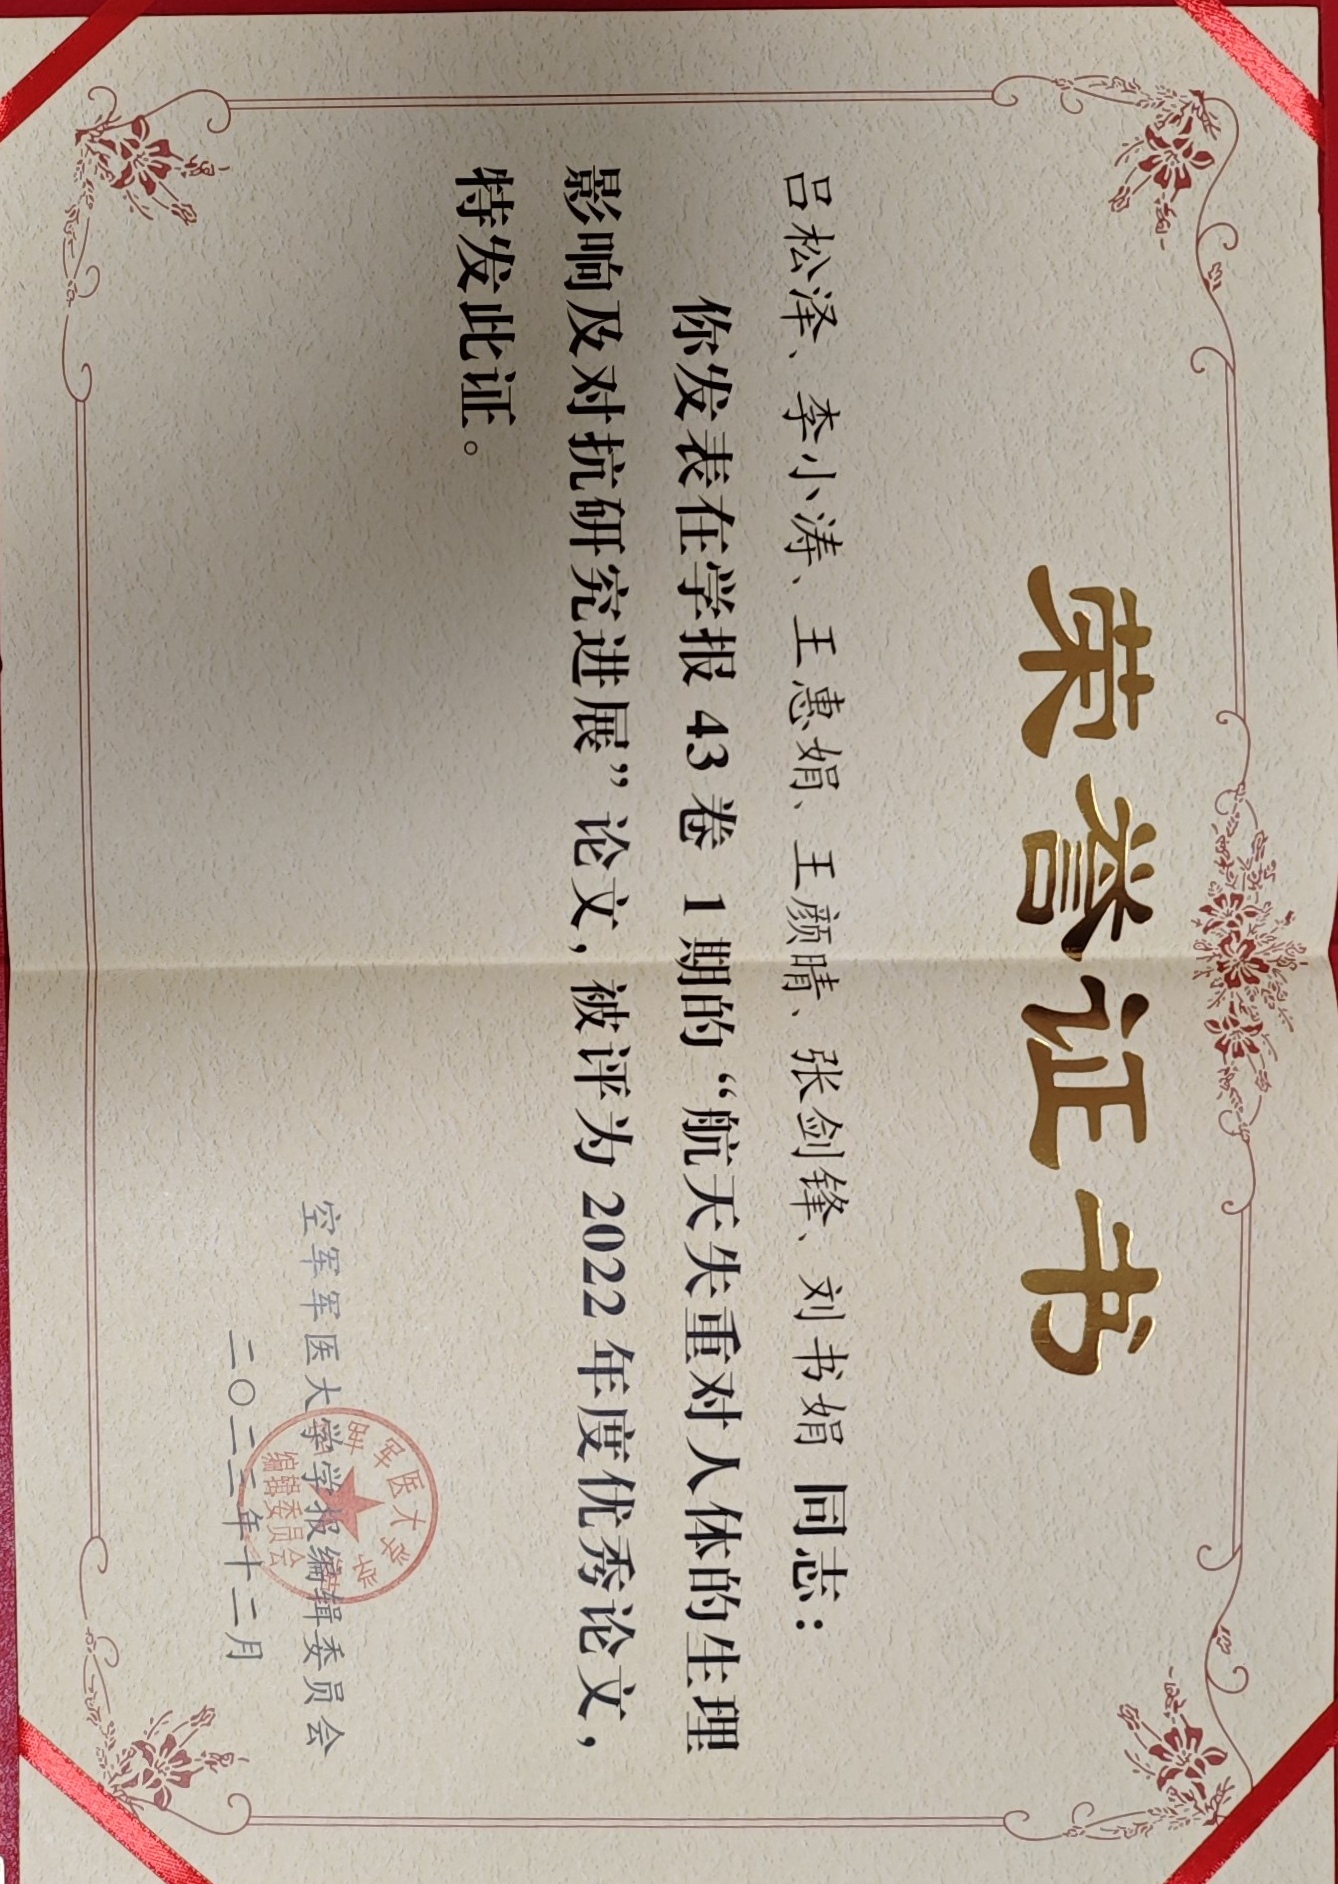 荣誉证书
吕松泽、李小涛、王惠娟、王颜晴、张剑锋、刘书娟 同志：
你发表在学报 43 卷 1 期的“航天失重对人体的生理
影响及对抗研究进展”论文，被评为 2022 年度优秀论文，
特发此证。
空军军医大学学报编辑委员会
二〇二二年十二月
编辑委员会